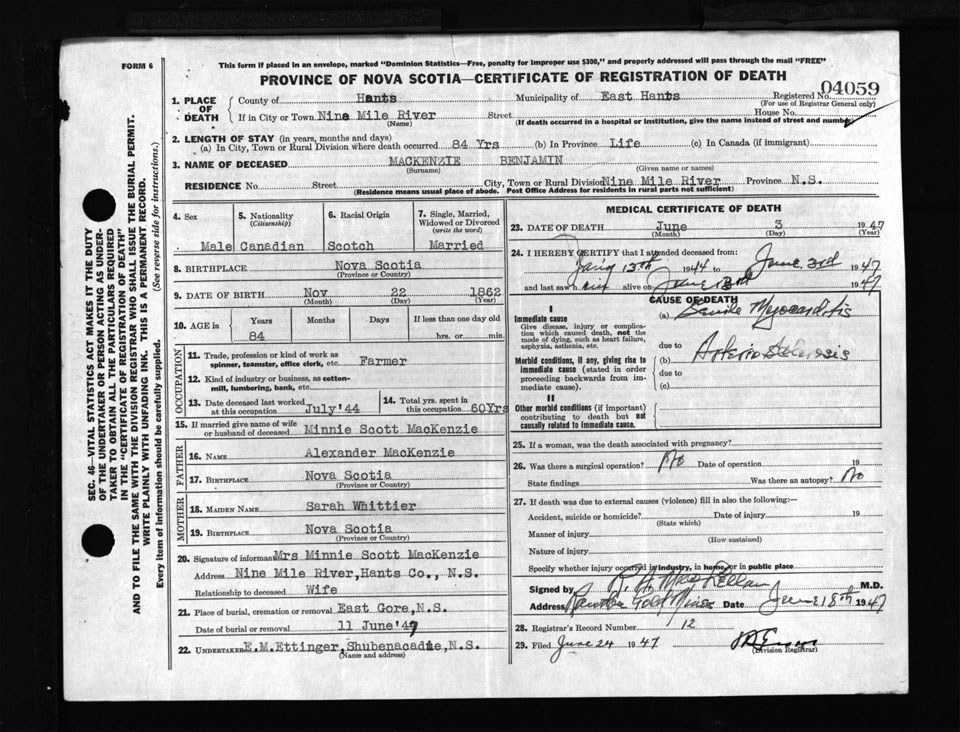 FORM 6
This form if placed in an envelope, marked "Dominion Statistics—Free, penalty for improper use $300," and properly addressed will pass through the mail "FREE"
PROVINCE OF NOVA SCOTIA—CERTIFICATE OF REGISTRATION OF DEATH
04059
1. PLACE OF DEATH County of Hants Municipality of East Hants Registered No.
(For use of Registrar General only)
If in City or Town Nine Mile River Street House No.
(Name) (If death occurred in a hospital or institution, give the name instead of street and number)
2. LENGTH OF STAY (in years, months and days)
(a) In City, Town or Rural Division where death occurred 84 Yrs (b) In Province Life (c) In Canada (if immigrant)
3. NAME OF DECEASED MACKENZIE BENJAMIN
(Surname) (Given name or names)
RESIDENCE No. Street City, Town or Rural Division Nine Mile River Province N.S.
(Residence means usual place of abode. Post Office Address for residents in rural parts not sufficient)
4. Sex Male
5. Nationality (Citizenship) Canadian
6. Racial Origin Scotch
7. Single, Married, Widowed or Divorced (write the word) Married
8. BIRTHPLACE Nova Scotia
(Province or Country)
9. DATE OF BIRTH Nov 22 1862
(Month) (Day) (Year)
10. AGE in Years Months Days If less than one day old
84 hrs. or min.
OCCUPATION
11. Trade, profession or kind of work as spinner, teamster, office clerk, etc. Farmer
12. Kind of industry or business, as cotton-mill, lumbering, bank, etc.
13. Date deceased last worked at this occupation July '44
14. Total yrs. spent in this occupation 60Yrs
15. If married give name of wife or husband of deceased Minnie Scott MacKenzie
FATHER
16. NAME Alexander MacKenzie
17. BIRTHPLACE Nova Scotia
(Province or Country)
MOTHER
18. MAIDEN NAME Sarah Whittier
19. BIRTHPLACE Nova Scotia
(Province or Country)
20. Signature of informant Mrs Minnie Scott MacKenzie
Address Nine Mile River,Hants Co., N.S.
Relationship to deceased Wife
21. Place of burial, cremation or removal East Gore,N.S.
Date of burial or removal 11 June '47
22. UNDERTAKER E.M.Ettinger,Shubenacadie,N.S.
(Name and address)
MEDICAL CERTIFICATE OF DEATH
23. DATE OF DEATH June 3 1947
(Month) (Day) (Year)
24. I HEREBY CERTIFY that I attended deceased from:
13th 1944 to June 3rd 1947
and last saw him alive on June 1947
CAUSE OF DEATH
I
Immediate cause
Give disease, injury or complication which caused death, not the mode of dying, such as heart failure, asphyxia, asthenia, etc.
(a) Senile Myocarditis
due to
Morbid conditions, if any, giving rise to immediate cause (stated in order proceeding backwards from immediate cause).
(b) Arterio Sclerosis
due to
(c)
II
Other morbid conditions (if important) contributing to death but not causally related to immediate cause.
25. If a woman, was the death associated with pregnancy?
26. Was there a surgical operation? No Date of operation 19
State findings Was there an autopsy? No
27. If death was due to external causes (violence) fill in also the following:—
Accident, suicide or homicide? Date of injury 19
(State which)
Manner of injury
(How sustained)
Nature of injury
Specify whether injury occurred in industry, in home, or in public place
Signed by R. A. MacLellan M.D.
Address Rawdon Gold Mines Date June 18th 1947
28. Registrar's Record Number 12
29. Filed June 24 1947
(Division Registrar)
SEC. 46—VITAL STATISTICS ACT MAKES IT THE DUTY
OF THE UNDERTAKER OR PERSON ACTING AS UNDER-
TAKER TO OBTAIN ALL THE PARTICULARS REQUIRED
IN THE "CERTIFICATE OF REGISTRATION OF DEATH"
AND TO FILE THE SAME WITH THE DIVISION REGISTRAR WHO SHALL ISSUE THE BURIAL PERMIT.
WRITE PLAINLY WITH UNFADING INK. THIS IS A PERMANENT RECORD.
Every item of information should be carefully supplied. (See reverse side for instructions.)